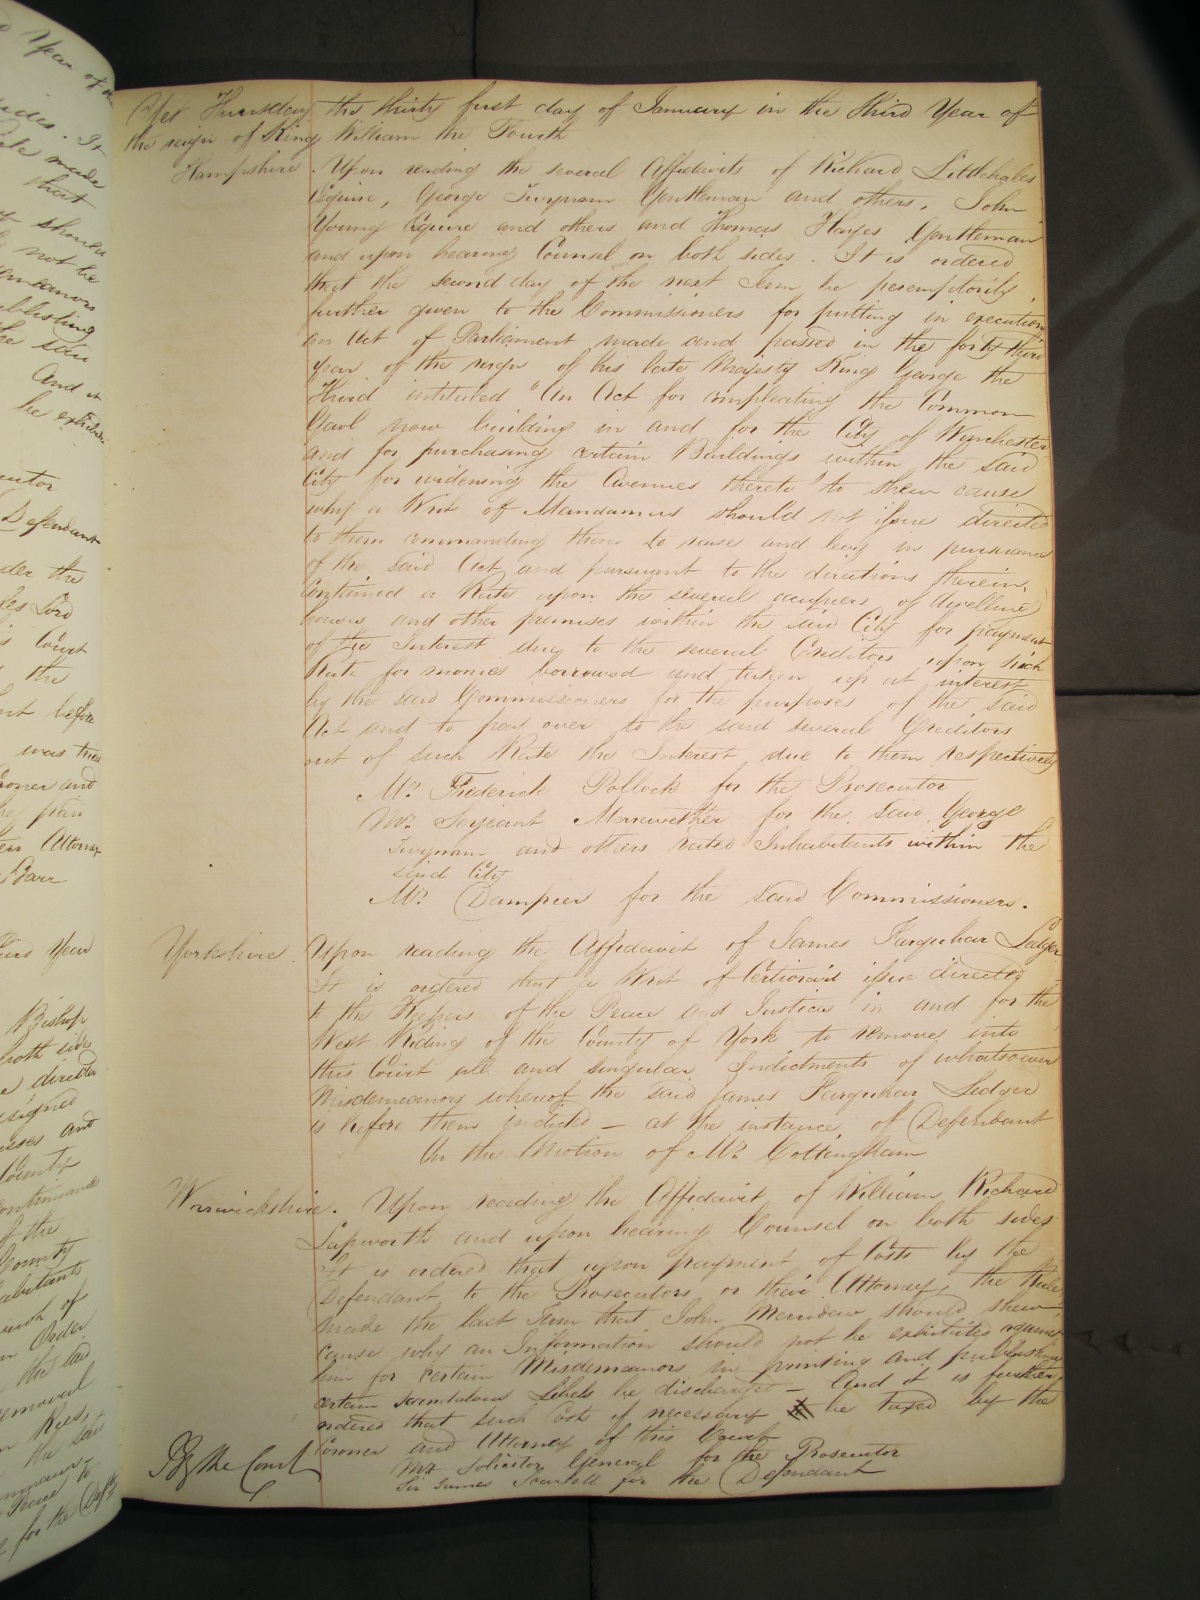 Yet Thursday the thirty first day of January in the third Year of
the reign of King William the Fourth
Hampshire . Upon reading the several Affidavits of Richard Littlehales
Esquire, George Twynam Gentleman and others, John
Young Esquire and others and Thomas Hayes Gentleman
and upon hearing Counsel on both sides . It is ordered
that the second day of the next Term be peremptorily
further given to the Commissioners for putting in execution
an Act of Parliament made and passed in the forty third
year of the reign of his late Majesty King George the
Third intituled "An Act for compleating the Common
Gaol now building in and for the City of Winchester
and for purchasing certain Buildings within the said
City for widening the Avenues thereto" to shew cause
why a Writ of Mandamus should not issue directed
to them commanding them to raise and levy in pursuance
of the said Act and pursuant to the directions therein
contained a Rate upon the several occupiers of dwelling
houses and other premises within the said City for payment
of the Interest due to the several Creditors upon such
Rate for monies borrowed and taken up at interest
by the said Commissioners for the purposes of the said
Act and to pay over to the said several Creditors
out of such Rate the Interest due to them respectively
Mr. Frederick Pollock for the Prosecutor
Mr. Serjeant Merewether for the said George
Twynam and others rated Inhabitants within the
said City
Mr. Dampier for the said Commissioners.
Yorkshire . Upon reading the Affidavit of James Farquhar Ledger
It is ordered that a Writ of Certiorari issue directed
to the Keepers of the Peace and Justices in and for the
West Riding of the County of York to remove into
this Court all and singular Indictments of whatsoever
Misdemeanors whereof the said James Farquhar Ledger
is before them indicted – at the instance of Defendant
On the Motion of Mr. Cottingham
Warwickshire . Upon reading the Affidavit of William Richard
Lapworth and upon hearing Counsel on both sides
It is ordered that upon payment of Costs by the
Defendant to the Prosecutors or their Attorney, the Rule
made the last Term that John Merridew should shew
cause why an Information should not be exhibited against
him for certain Misdemeanors in printing and publishing
certain scandalous Libels be discharged – And it is further
ordered that such Costs if necessary be taxed by the
Coroner and Attorney of this Court
Mr Solicitor General for the Prosecutor
Sir James Scarlett for the Defendant
By the Court